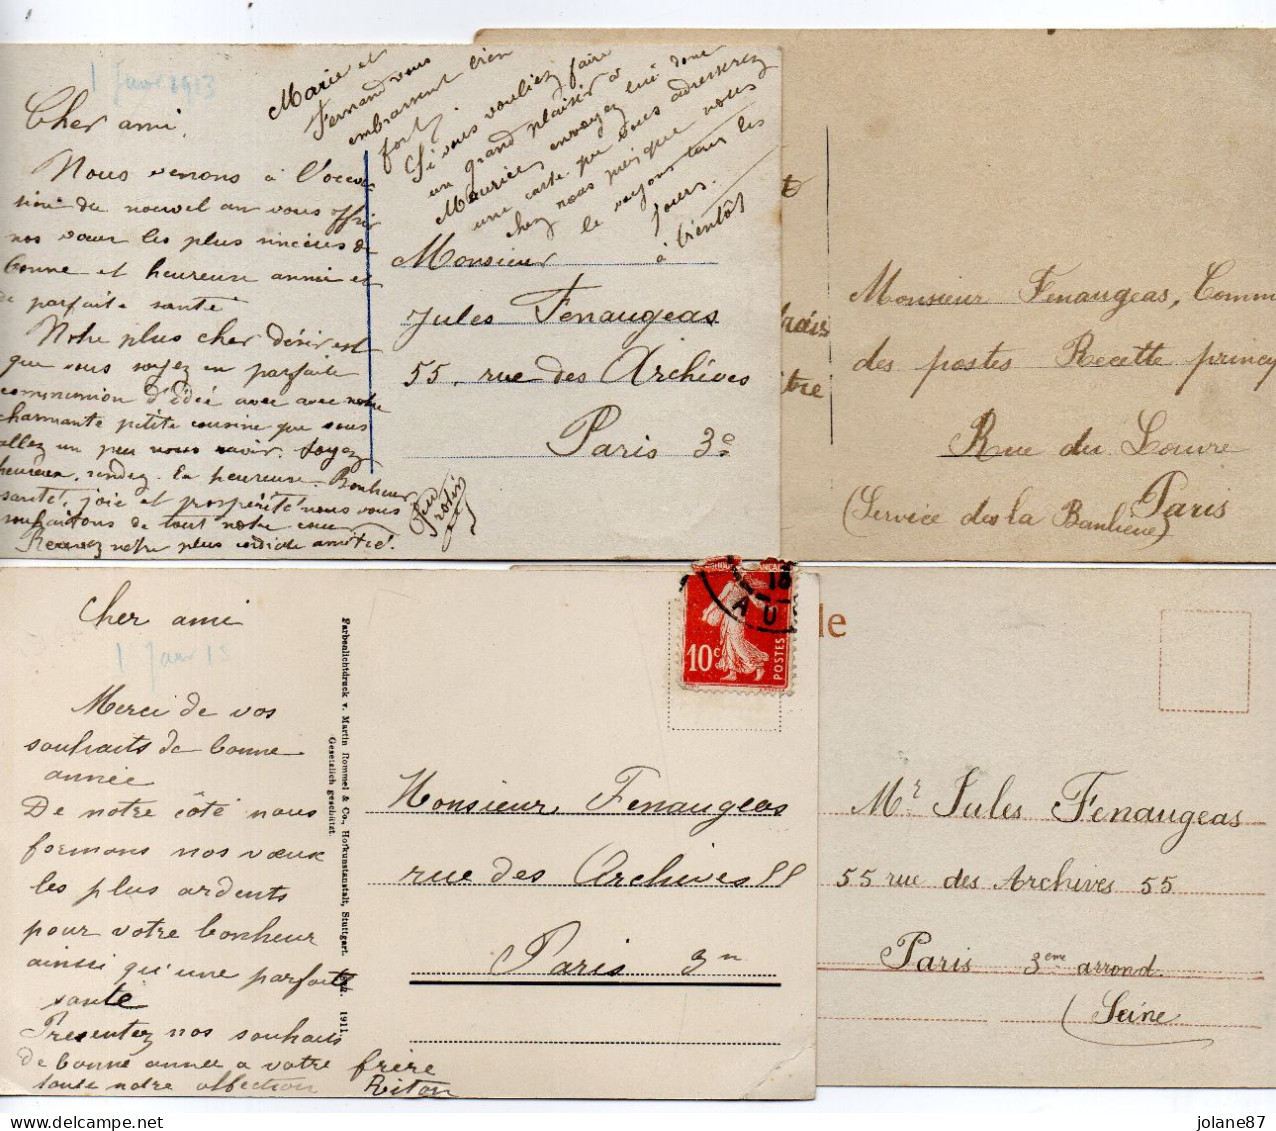 1 Janv 1913
Cher ami,
Nous venons à l'occa
sion du nouvel an vous offrir
nos vœux les plus sincères de
bonne et heureuse année et
de parfaite santé
Notre plus cher désir est
que vous soyez en parfaite
communion d'idée avec avec notre
charmante petite cousine que vous
allez un peu nous ravir. Soyez
heureux, rendez la heureuse. Bonheur
santé, joie et prospérité nous vous
souhaitons de tout notre cœur
Recevez notre plus cordiale amitié.
Marie et
Fernand vous
embrassent bien
fort,
Si vous vouliez faire
un grand plaisir à
Maurice, envoyez lui donc
une carte que vous adresserez
chez nous puisque nous
le voyons tous les
jours.
à bientôt
Monsieur
Jules Fenaugeas
55, rue des Archives
Paris 3e
Monsieur Fenaugeas, Comm
des postes Recette princip
Rue du Louvre
Paris
(Service de la Banlieue)
Cher ami
1 Janv 15
Merci de vos
souhaits de bonne
année
De notre côté nous
formons nos vœux
les plus ardents
pour votre bonheur
ainsi qu'une parfaite
santé
Presentez nos souhaits
de bonne annee a votre frère
toute notre affection Riton
Farbenlichtdruck v. Martin Rommel & Co., Hofkunstanstalt, Stuttgart. 1911.
Gesetzlich geschützt.
10c
POSTES
Monsieur Fenaugeas
rue des Archives 55
Paris 3n
le
Mr Jules Fenaugeas
55 rue des Archives 55
Paris 3eme arrond
(Seine
jolane87